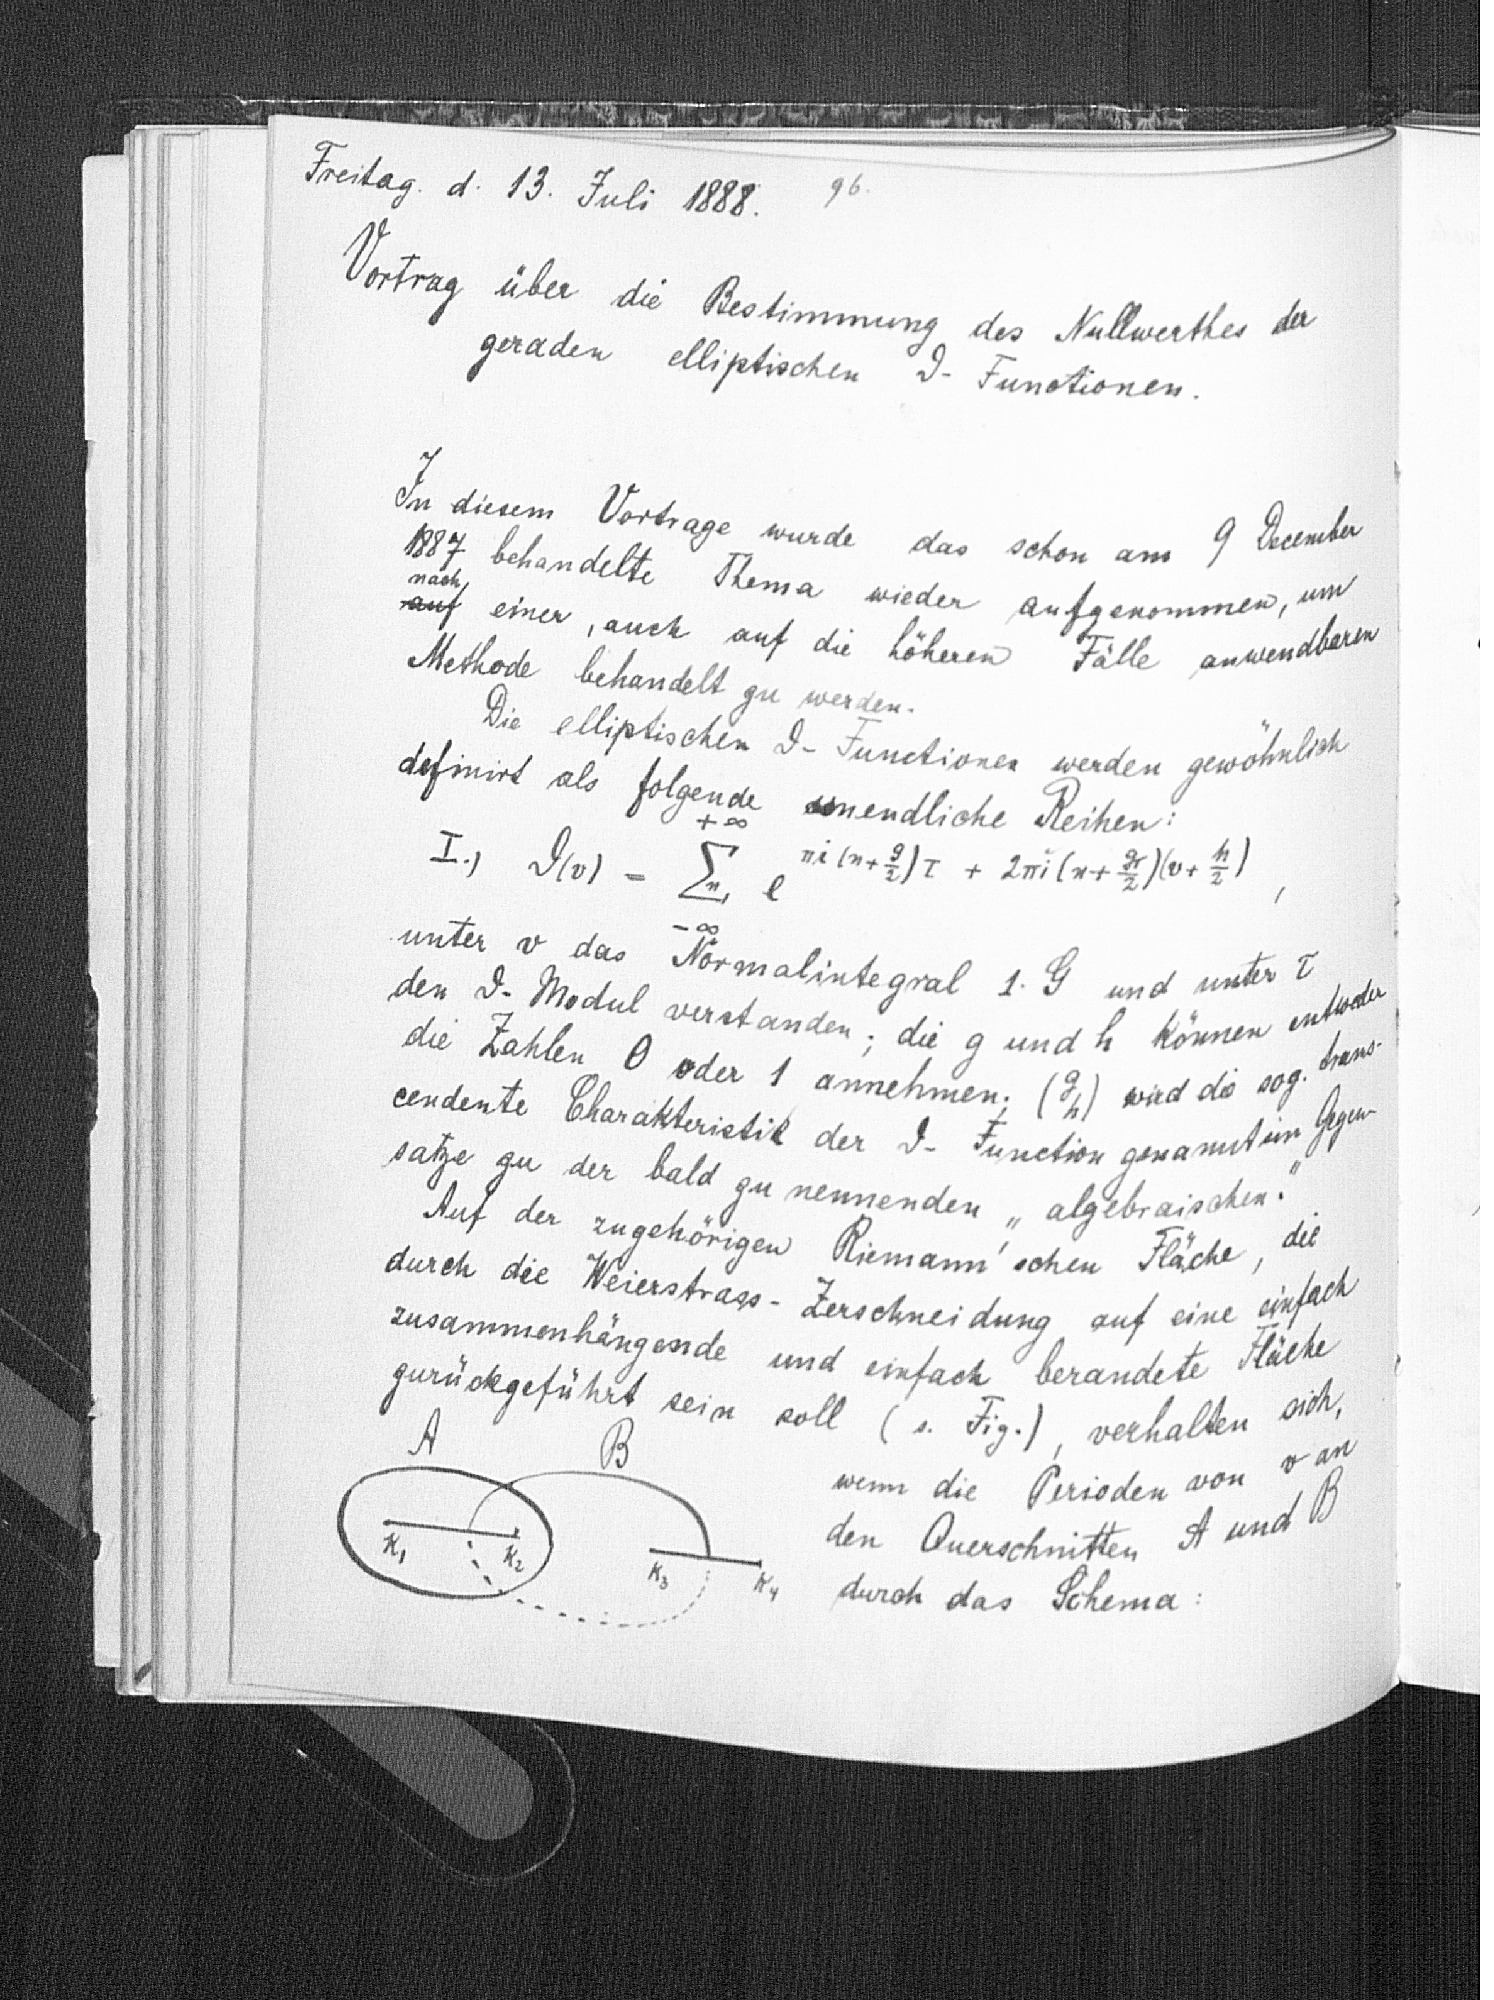 Freitag. d. 13. Juli 1888. 96.
Vortrag über die Bestimmung des Nullwerthes der
geraden elliptischen ϑ- Functionen.
In diesem Vortrage wurde das schon am 9 December
1887 behandelte Thema wieder aufgenommen, um
nach
auf einer, auch auf die höheren Fälle anwendbaren
Methode behandelt zu werden.
Die elliptischen ϑ- Functionen werden gewöhnlich
definirt als folgende unendliche Reihen:
I.) ϑ(v) = \sum_{n, -∞}^{+∞} e^{πi(n+\frac{g}{2})τ + 2πi(n+\frac{g}{2})(v+\frac{h}{2})},
unter v das Normalintegral 1. G und unter τ
den ϑ- Modul verstanden; die g und h können entweder
die Zahlen 0 oder 1 annehmen; (g/h) wird die sog. trans-
cendente Charakteristik der ϑ- Function genannt im Gegen-
satze zu der bald zu nennenden „algebraischen."
Auf der zugehörigen Riemann'schen Fläche, die
durch die Weierstrass- Zerschneidung auf eine einfach
zusammenhängende und einfach berandete Fläche
zurückgeführt sein soll (s. Fig.), verhalten sich,
A B
K₁ K₂ K₃ K₄
wenn die Perioden von v an
den Querschnitten A und B
durch das Schema: